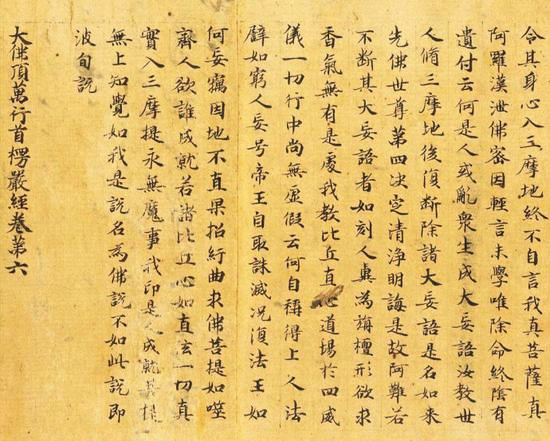 令其身心入三摩地終不自言我真菩薩真
阿羅漢泄佛密因輕言未學唯除命終陰有
遺付云何是人或亂衆生成大妄語汝教世
人脩三摩地後復斷除諸大妄語是名如來
先佛世尊第四決定清淨明誨是故阿難若
不斷其大妄語者如刻人糞為旃檀形欲求
香氣無有是處我教比丘直心道場於四威
儀一切行中尚無虛假云何自稱得上人法
譬如窮人妄号帝王自取誅滅況復法王如
何妄竊因地不直果招紆曲求佛菩提如噬
齊人欲誰成就若諸比丘心如直弦一切真
實入三摩提永無魔事我印是人成就菩提
無上知覺如我是說名為佛說不如此說即
波旬說
大佛頂萬行首楞嚴經卷第六